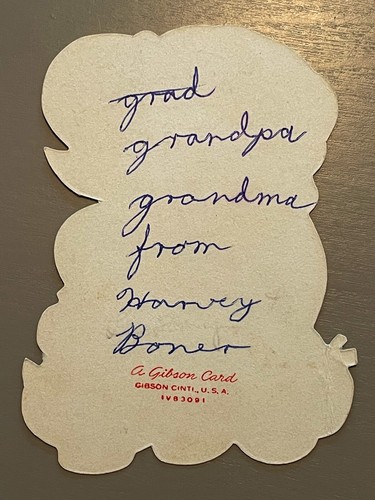 grad
grandpa
grandma
from
Harvey
Boner
A Gibson Card
GIBSON CINTI., U.S.A.
IVB3091